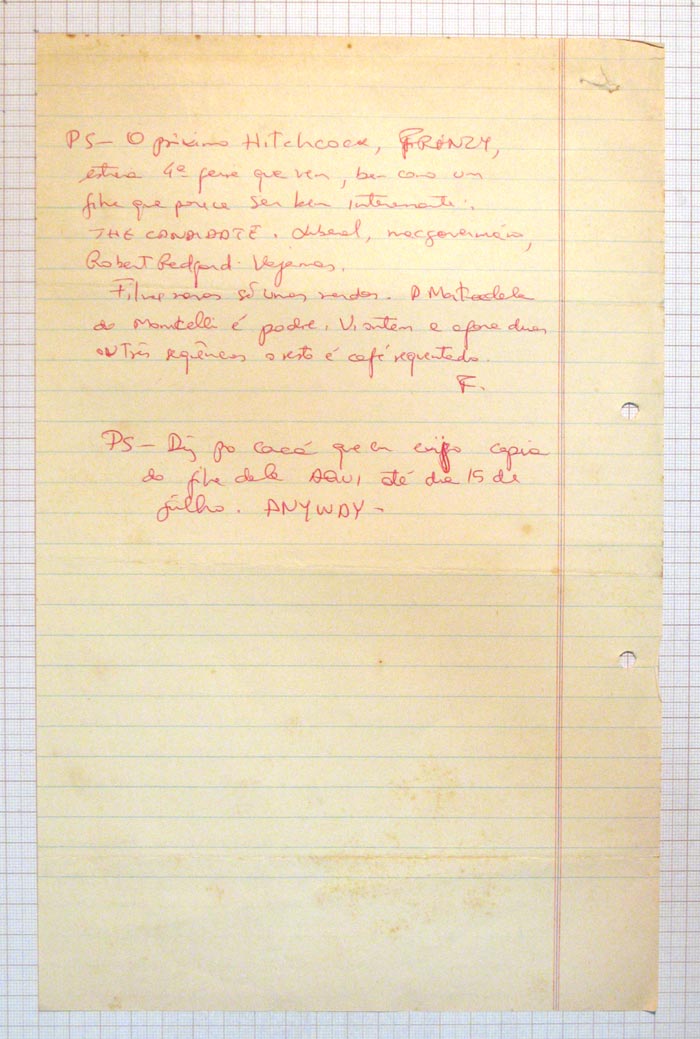 PS – O próximo Hitchcock, FRENZY,
estreia 4ª feira que vem, bem como um
filme que parece ser bem interessante:
THE CANDIDATE. Liberal, macgoverniano,
Robert Redford. Vejamos.
Filmes novos só umas merdas. A Mortadela
do Monicelli é podre. Vi ontem e afora duas
ou três seqüências o resto é café requentado.
F.
PS – Diz pro cacá que eu exijo copia
do filme dele AQUI até dia 15 de
julho. ANYWAY –